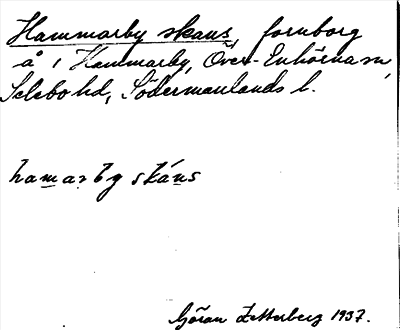 Hammarby skans, fornborg
å 1 Hammarby, Över-Enhörna sn,
Selebo hd, Södermanlands l.
hamarby skáns
Göran Zetterberg 1937.